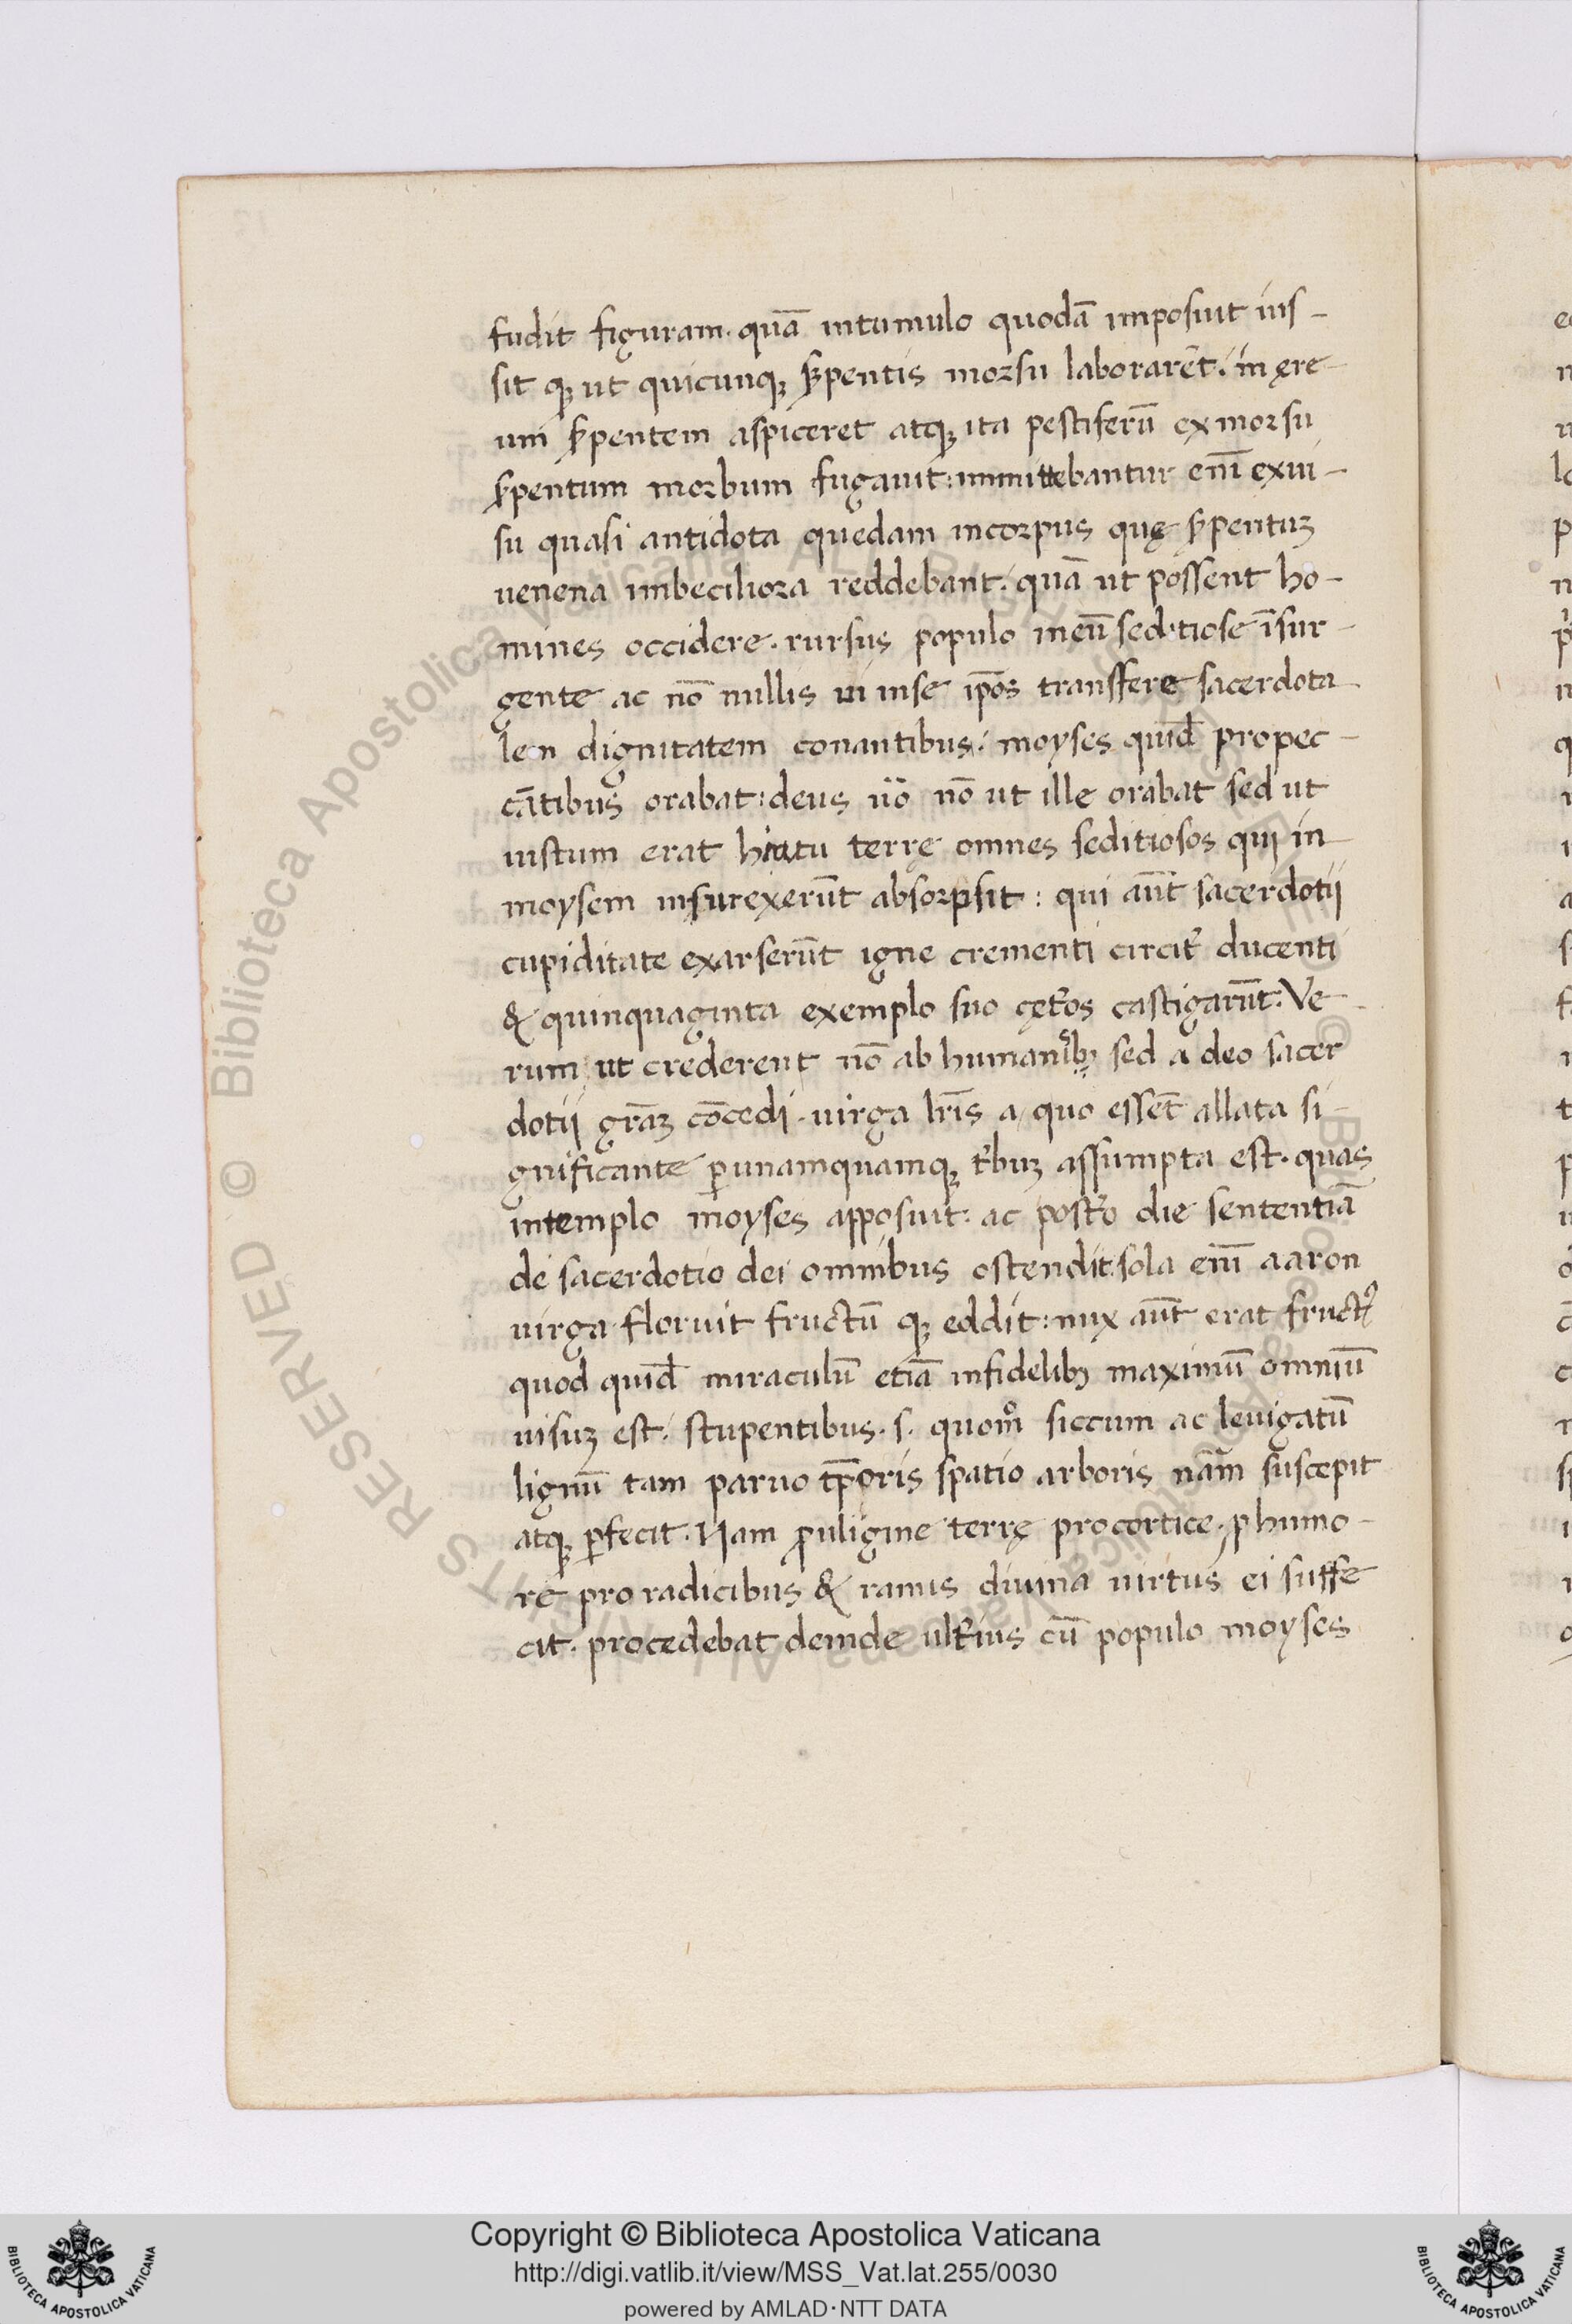 fudit figuram. quā in tumulo quodā imposuit ius-
sit q; ut quicunq; s̄pentis morsu laborarēt. in ęre-
um s̄pentem aspiceret atq; ita pestiferū ex morsu
s̄pentum morbum fugauit: immittebantur enī ex ui-
su quasi antidota quedam in corpus quę s̄pentuȝ
uenena imbeciliora reddebant. quā ut possent ho-
mines occidere. rursus populo in eū seditiose īsur-
gente ac nō nullis ui in se ip̄os transffere sacerdota-
lem dignitatem conantibus. moyses quid̄ pro pec-
cātibus orabat: deus ūo nō ut ille orabat sed ut
iustum erat hiatu terrę omnes seditiosos qui in
moysem insurexerūt absorpsit: qui aūt sacerdotii
cupiditate exarserūt igne crementi circit̄ ducenti
& quinquaginta exemplo suo cęt̄os castigarūt. Ve-
rum ut crederent nō ab humanib; sed a deo sacer
dotii gr̄aȝ cōcedi. uirga lr̄is a quo essēt allata si-
gnificante p̱ unamquamq; t̄buȝ assumpta est. quas
in templo moyses apposuit: ac post̄o die sententiā
de sacerdotio dei omnibus ostendit: sola enī aaron
uirga floruit fructū q; eddit: nux aūt erat fructꝰ
quod quid̄ miraculū etiā infidelib; maximū omniū
uisuȝ est. stupentibus. s. quom̊ siccum ac leuigatū
lignū tam paruo tp̄oris spatio arboris nām suscepit
atq; p̱fecit. Nam ꝓ uligine terrę pro cortice, ꝓ humo-
re pro radicibus & ramis diuina uirtus ei suffe
cit. procedebat deinde ult̄ius cū populo moyses
Copyright © Biblioteca Apostolica Vaticana
http://digi.vatlib.it/view/MSS_Vat.lat.255/0030
powered by AMLAD·NTT DATA
BIBLIOTECA APOSTOLICA VATICANA
BIBLIOTECA APOSTOLICA VATICANA